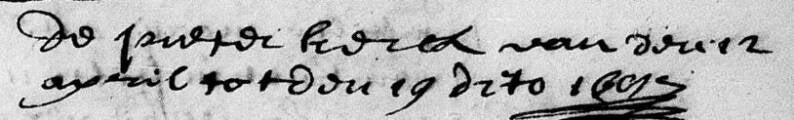 de pieter kerck van den 12
april tot den 19 dito 1693